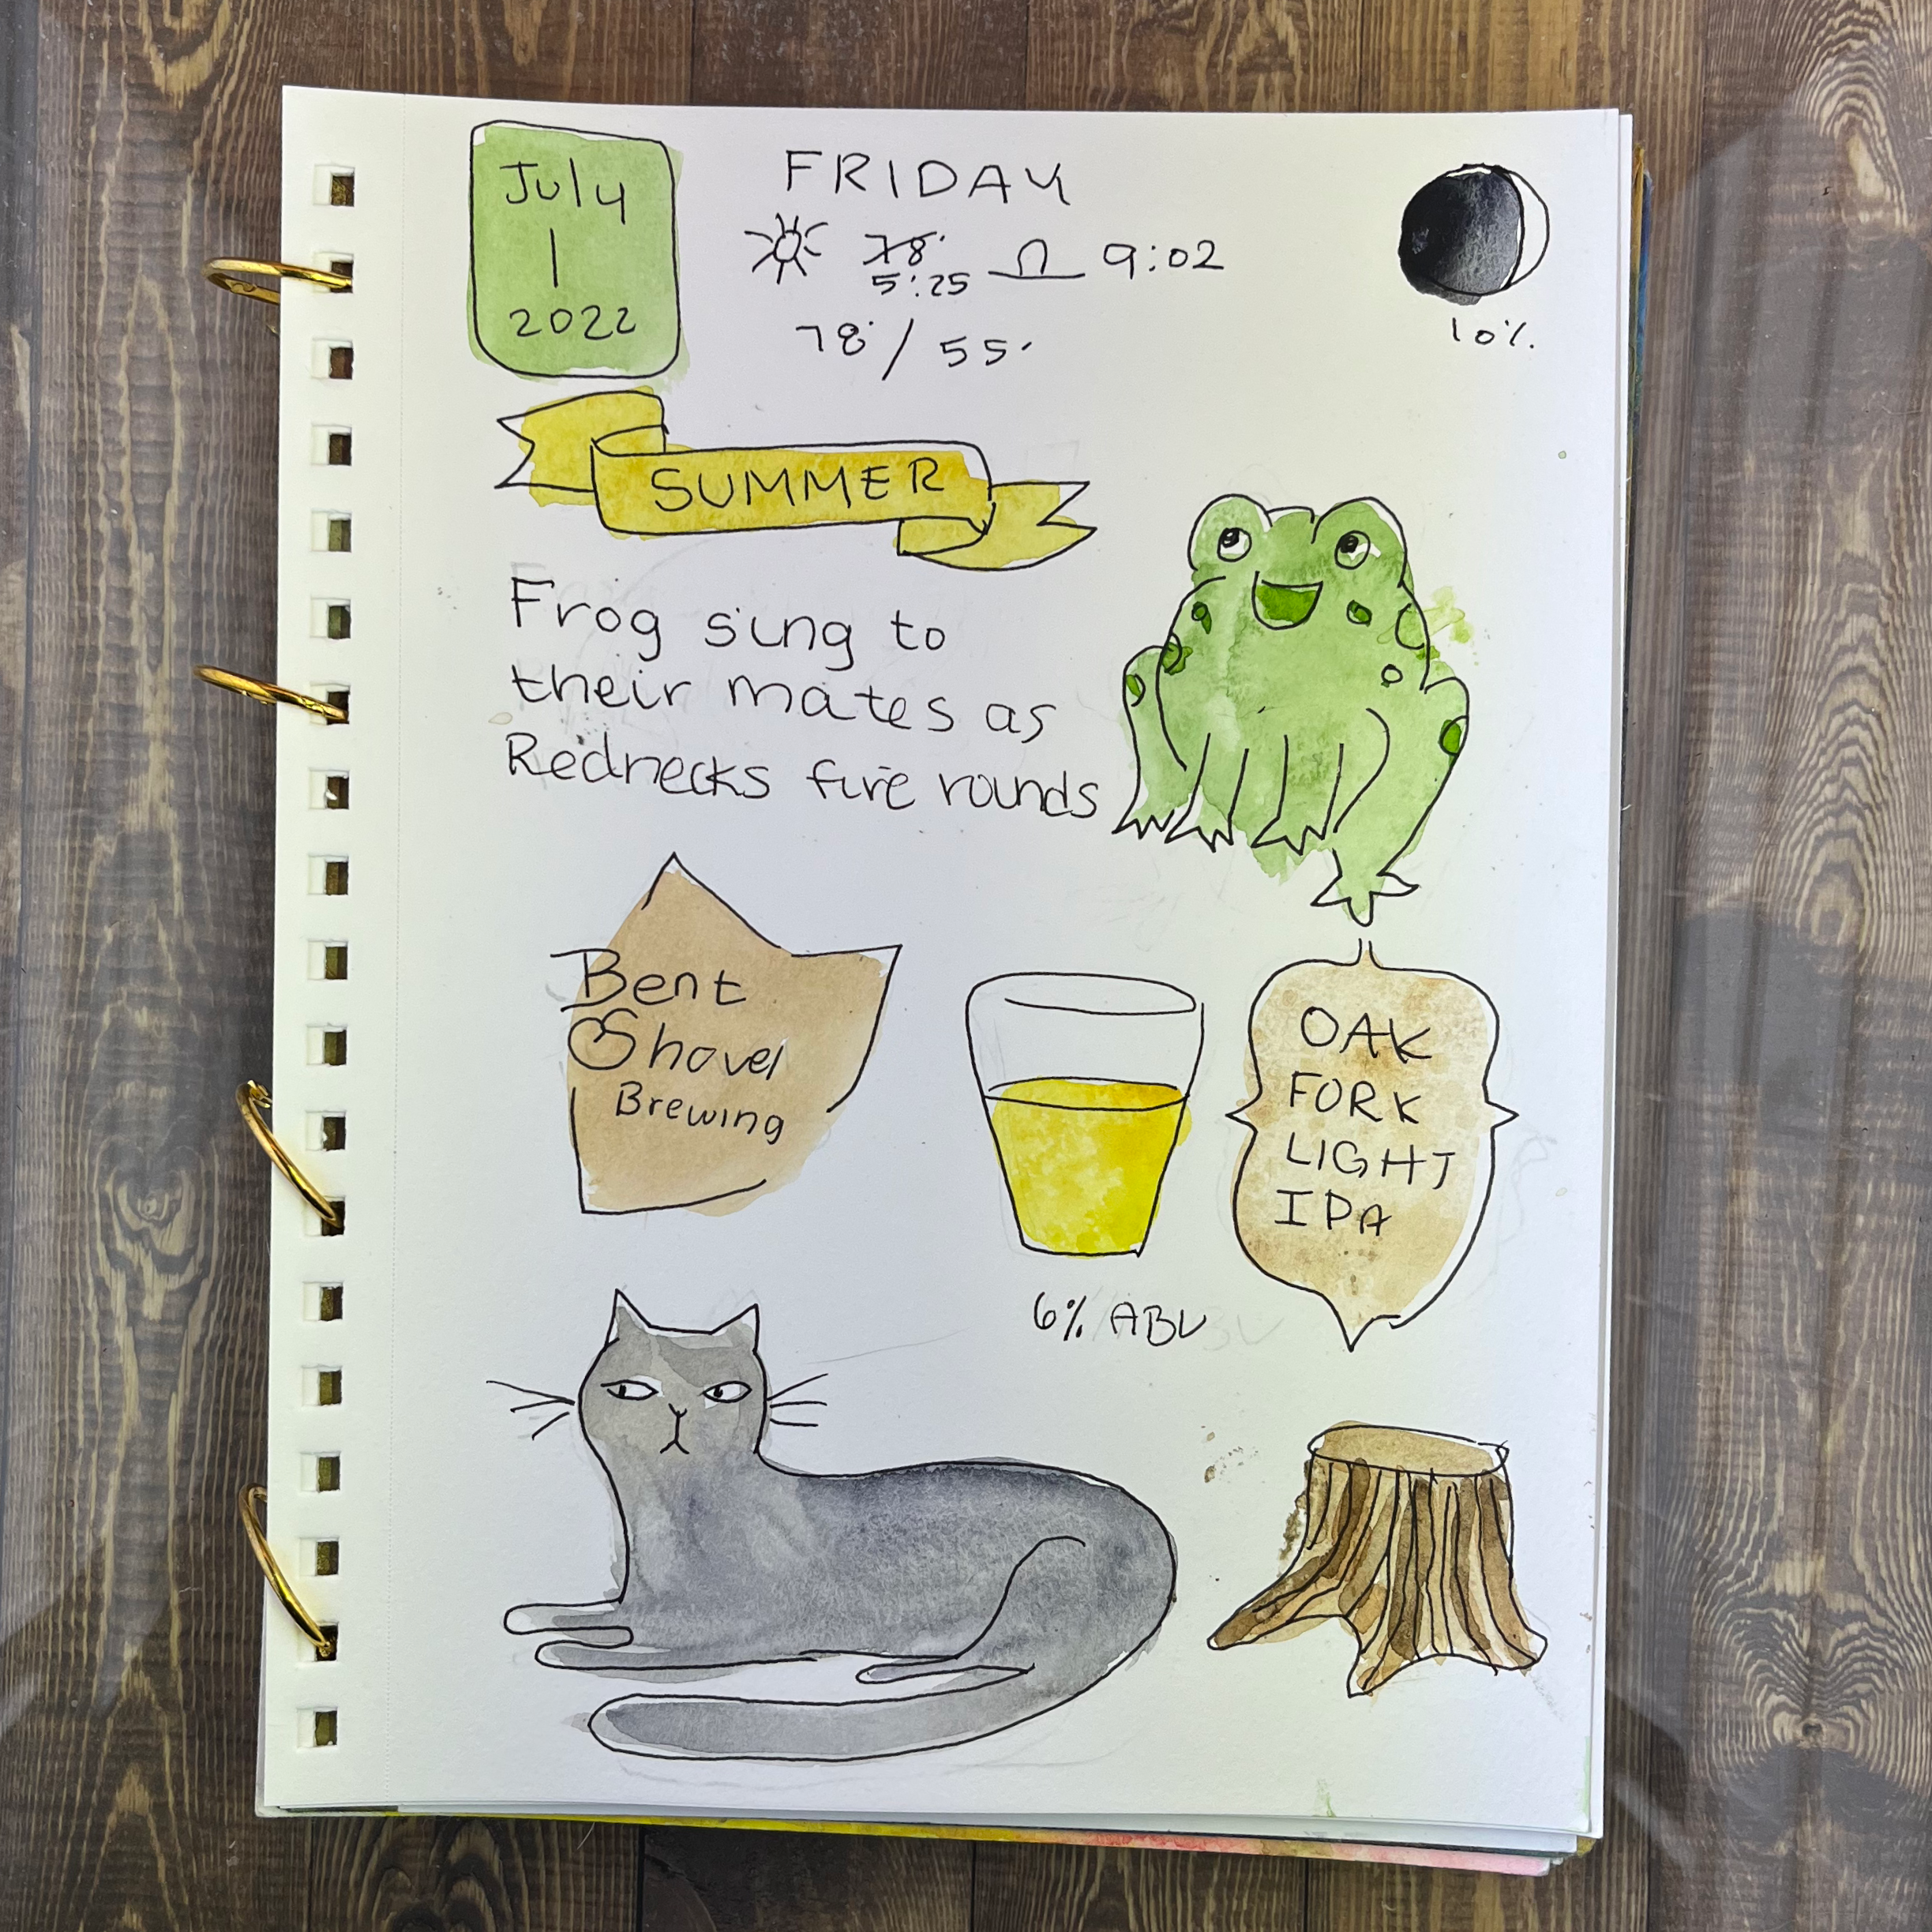 July
1
2022
FRIDAY
78°
5:25
9:02
78°/55°
10%
SUMMER
Frog sing to
their mates as
Rednecks fire rounds
Bent
Shovel
Brewing
OAK
FORK
LIGHT
IPA
6% ABV